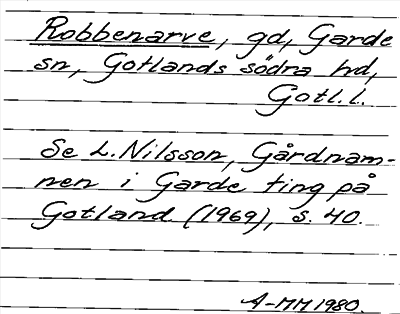 Robbenarve, gd, Garde
sn, Gotlands södra hd,
Gotl.l.
Se L. Nilsson, Gårdnam-
nen i Garde ting på
Gotland (1969), s. 40.
A-MM 1980.